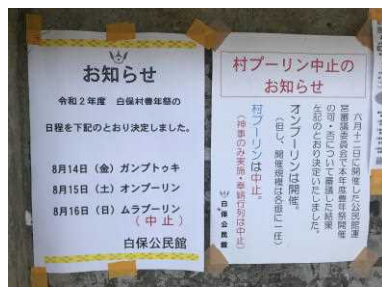 お知らせ
令和2年度 白保村豊年祭の
日程を下記のとおり決定しました。
8月14日(金) ガンプトゥキ
8月15日(土) オンプーリン
8月16日(日) ムラプーリン
(中止)
白保公民館
村プーリン中止の
お知らせ
六月十二日に開催した公民館運
営審議委員会で本年度豊年祭開催
の可・否について審議した結果
左記のとおり決定いたしました。
オンプーリンは開催。
(但し、開催規模は各嶽に一任)
村プーリンは中止。
(神事のみ実施・奉納行列は中止)
白保公民館